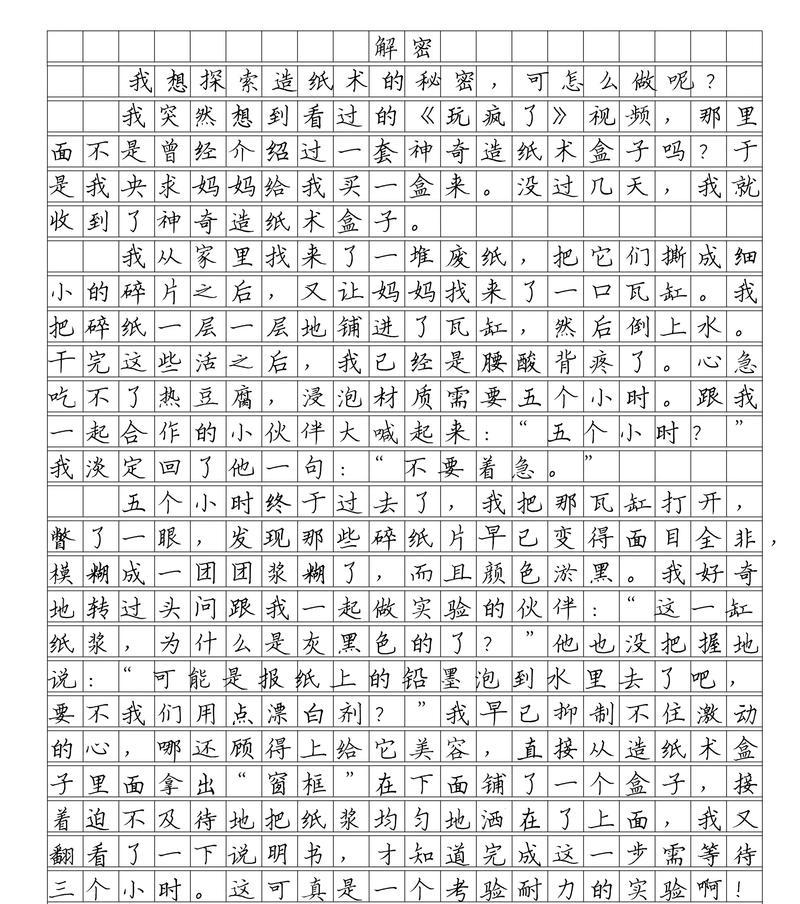 解密
我想探索造纸术的秘密，可怎么做呢？
我突然想到看过的《玩疯了》视频，那里
面不是曾经介绍过一套神奇造纸术盒子吗？于
是我央求妈妈给我买一盒来。没过几天，我就
收到了神奇造纸术盒子。
我从家里找来了一堆废纸，把它们撕成细
小的碎片之后，又让妈妈找来了一口瓦缸。我
把碎纸一层一层地铺进了瓦缸，然后倒上水。
干完这些活之后，我已经是腰酸背疼了。心急
吃不了热豆腐，浸泡材质需要五个小时。跟我
一起合作的小伙伴大喊起来：“五个小时？”
我淡定回了他一句：“不要着急。”
五个小时终于过去了，我把那瓦缸打开，
瞥了一眼，发现那些碎纸片早已变得面目全非，
模糊成一团团浆糊了，而且颜色淤黑。我好奇
地转过头问跟我一起做实验的伙伴：“这一缸
纸浆，为什么是灰黑色的了？”他也没把握地
说：“可能是报纸上的铅墨泡到水里去了吧，
要不我们用点漂白剂？”我早已抑制不住激动
的心，哪还顾得上给它美容，直接从造纸术盒
子里面拿出“窗框”在下面铺了一个盒子，接
着迫不及待地把纸浆均匀地洒在了上面，我又
翻看了一下说明书，才知道完成这一步需等待
三个小时。这可真是一个考验耐力的实验啊！